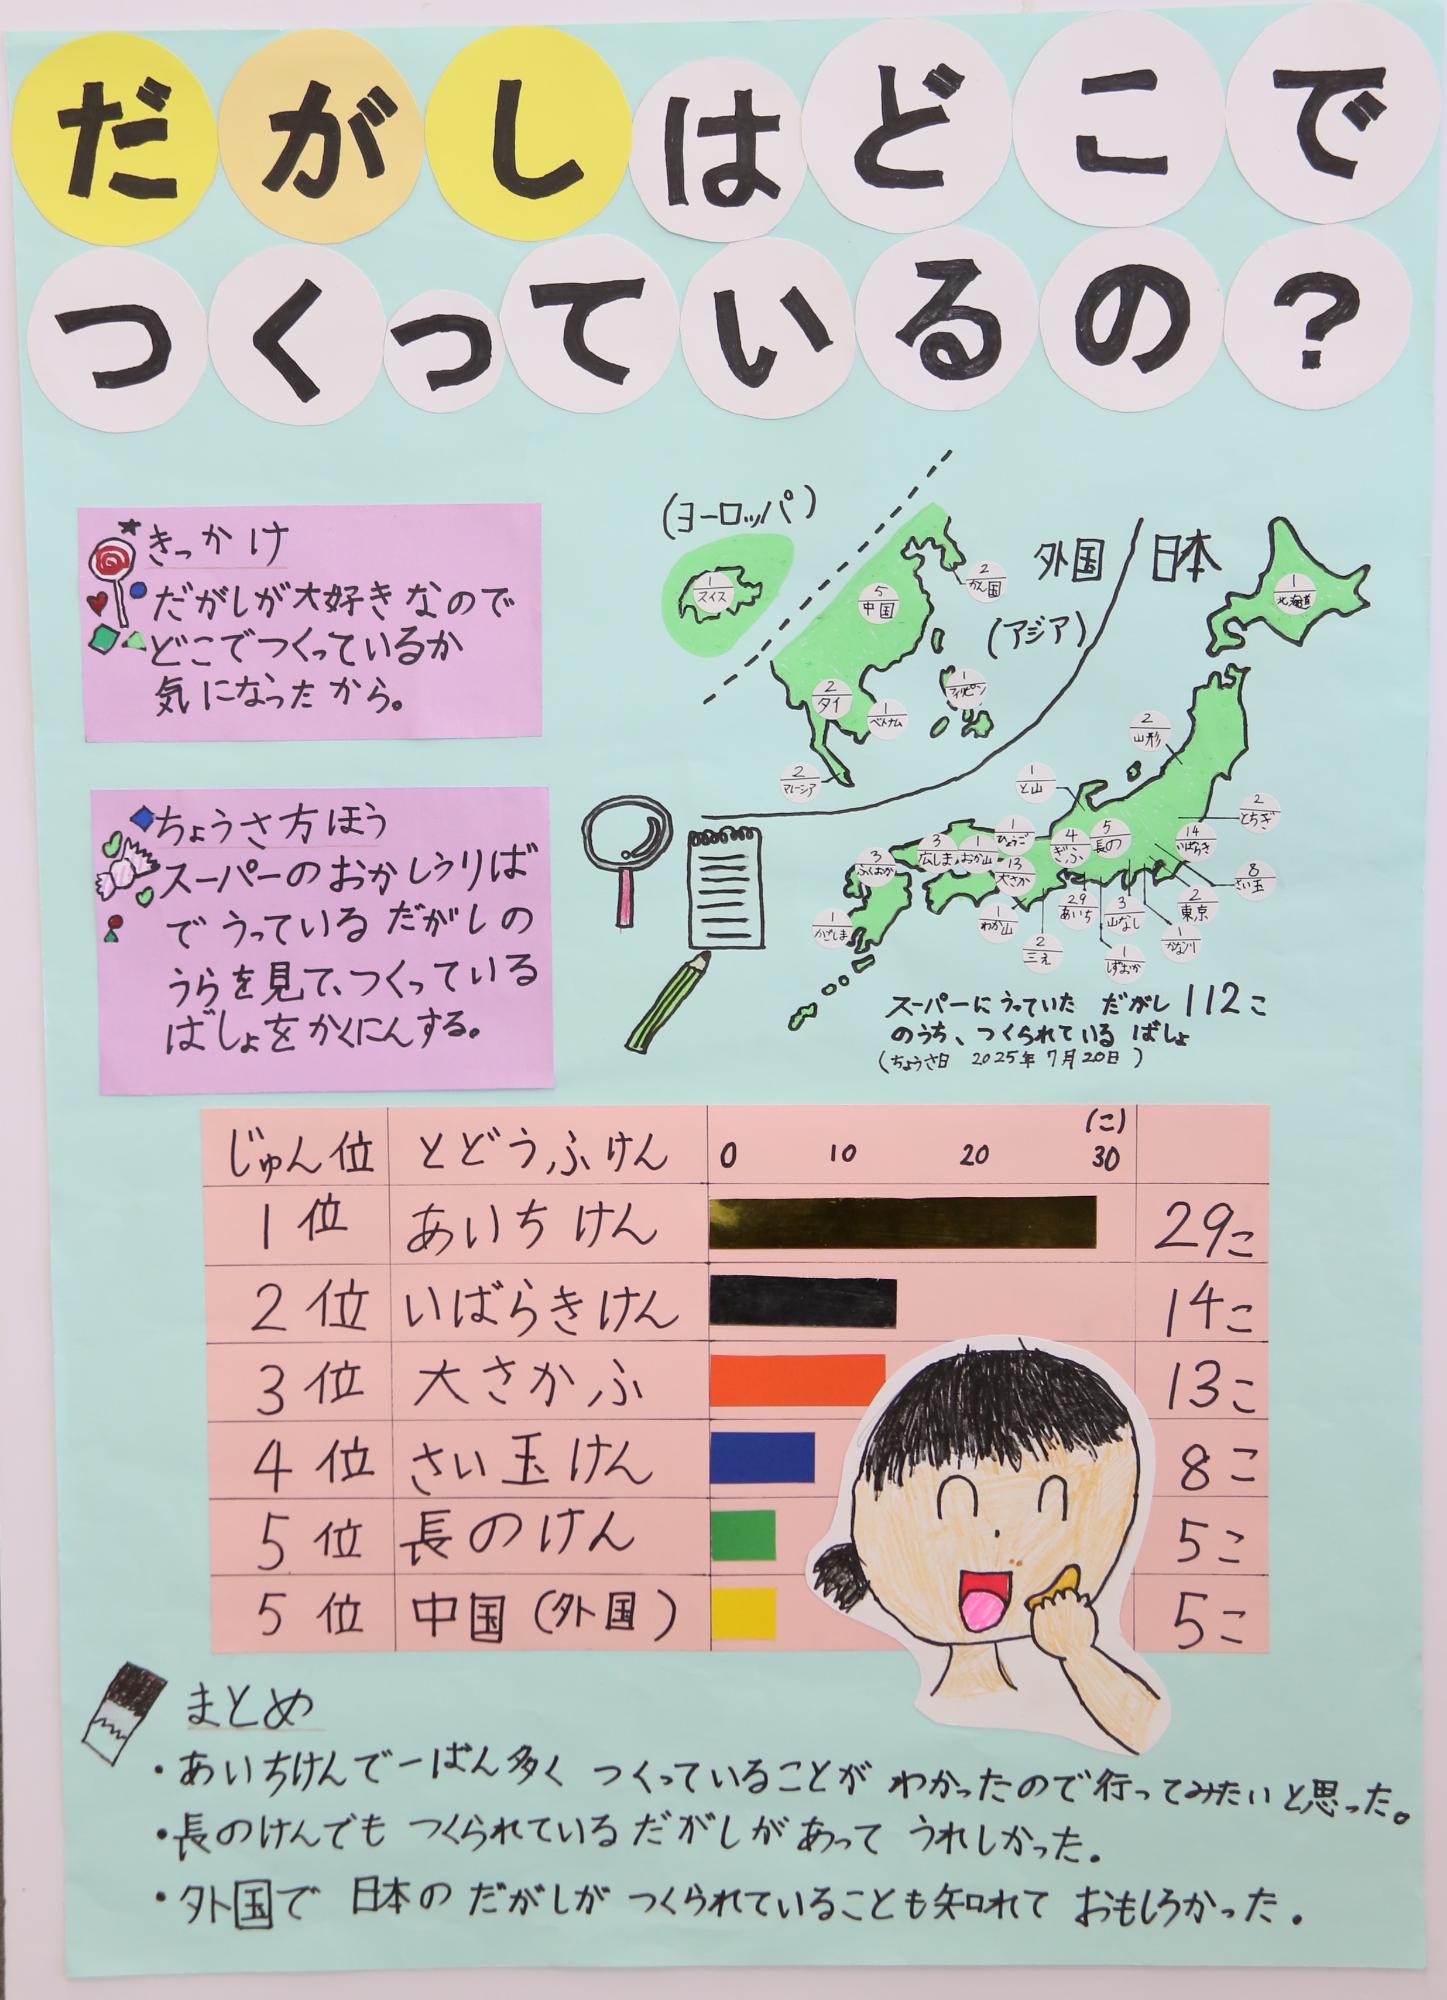 だがしはどこで
つくっているの?
きっかけ
だがしが大好きなので
どこでつくっているか
気になったから。
ちょうさ方ほう
スーパーのおかしうりば
でうっているだがしの
うらを見て、つくっている
ばしょをかくにんする。
(ヨーロッパ)
1
スイス
外国
日本
(アジア)
5
中国
2
かん国
2
タイ
1
ベトナム
1
フィリピン
2
マレーシア
1
北海道
2
山形
1
と山
2
とちぎ
14
いばらき
8
さい玉
2
東京
1
かな川
1
しずおか
3
山なし
5
長の
4
ぎふ
29
あいち
2
三え
1
わか山
13
大さか
1
ひょうご
1
おか山
3
広しま
3
ふくおか
1
かごしま
スーパーにうっていた だがし 112こ
のうち、つくられている ばしょ
(ちょうさ日 2025年 7月20日)
じゅん位 とどうふけん 0 10 20 30 (こ)
1位 あいちけん 29こ
2位 いばらきけん 14こ
3位 大さかふ 13こ
4位 さい玉けん 8こ
5位 長のけん 5こ
5位 中国(外国) 5こ
まとめ
・あいちけんで一ばん多く つくっていることが わかったので行ってみたいと思った。
・長のけんでも つくられているだがしがあって うれしかった。
・外国で 日本の だがしが つくられていることも知れて おもしろかった.